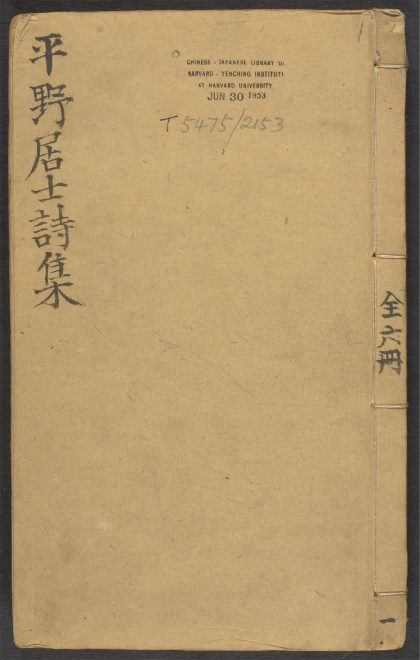 平野居士詩集
CHINESE - JAPANESE LIBRARY O
HARVARD - YENCHING INSTITUT
AT HARVARD UNIVERSITY
JUN 30 1953
T 5475/2153
1
全六冊
一